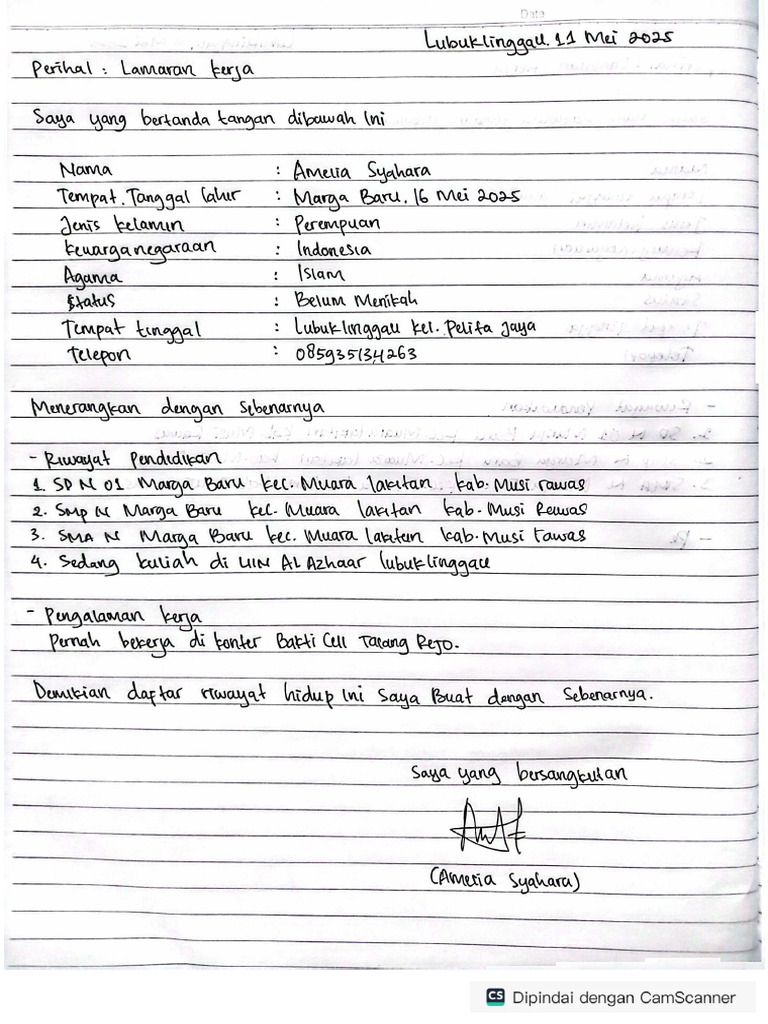 Date
Lubuklinggau, 11 Mei 2025
Perihal : Lamaran kerja
Saya yang bertanda tangan dibawah Ini
Nama : Amelia Syahara
Tempat. Tanggal lahir : Marga Baru, 16 Mei 2025
Jenis kelamin : Perempuan
kewarganegaraan : Indonesia
Agama : Islam
Status : Belum Menikah
Tempat tinggal : Lubuklinggau kel. Pelita Jaya
Telepon : 085935134263
Menerangkan dengan Sebenarnya
- Riwayat Pendidikan
1. SD N 01 Marga Baru kec. Muara lakitan kab. Musi rawas
2. Smp N Marga Baru kec. Muara lakitan kab. Musi Rawas
3. SMA N Marga Baru kec. Muara lakitan kab. Musi rawas
4. Sedang kuliah di UIN AL Azhaar lubuklinggau
- Pengalaman kerja
Pernah bekerja di konter Bakti Cell Talang Rejo.
Demikian daftar riwayat hidup Ini Saya Buat dengan Sebenarnya.
Saya yang bersangkutan
(Amelia Syahara)
CS Dipindai dengan CamScanner